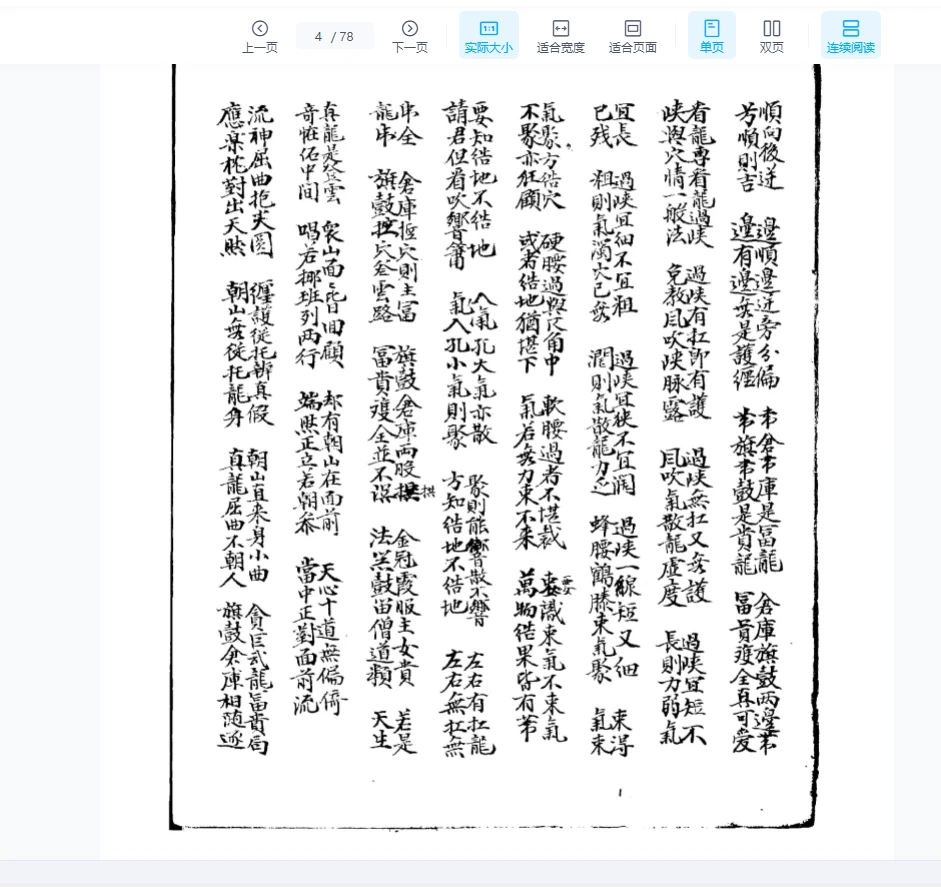 上一页 4 /78 下一页 实际大小 适合宽度 适合页面 单页 双页 连续阅读
順向後迸
芳順則吉
邊順邊逆旁分偏
邊有邊無是護纏
帯倉帯庫是富龍
帯旗帯鼓是貴龍
倉庫旗鼓两邊帯
冨貴雙全真可愛
看龍專看龍過峡
峡與穴情一般法
過峡有扛即有護
免教風吹峡脉露
過峡無扛又無護
風吹氣散龍虚度
過峡宜短不
長則力弱氣
宜長
已残
過峡宜細不宜粗
粗則氣濁穴已無
過峡宜狭不宜濶
濶則氣散龍力乏
過峡一線短又細
蜂腰鶴膝束氣聚
束得
氣束
氣聚方結穴
不聚亦狂顧
硬腰過與尺角中
或者结地猶堪下
軟腰過者不堪裁
氣若無力束不来
要識束氣不束氣
萬物结果皆有蒂
要知结地不结地
請君但看吹響筩
入氣孔大氣亦散
氣入孔小氣則聚
聚則能響散不響
方知结地不结地
左右有扛龍
左右無扛無
串全
龍串
倉庫捱穴則主冨
旗鼓捱穴登雲路
旗鼓倉庫两股拱
冨貴雙全並不误
金冠霞服主女貴
法器鼓笛僧道類
若是
天生
真龍是登雲
竒恠佑中間
衆山面面皆囬顧
喝若挪班列两行
却有朝山在面前
端然正立若朝参
天心十道無偏倚
當中正對面前流
流神屈曲抱尖圓
應案枕對出天然
纏護従托辨真假
朝山無従托龍身
朝山直来身小曲
真龍屈曲不朝人
貪巨武龍冨貴局
旗鼓倉庫相随逐